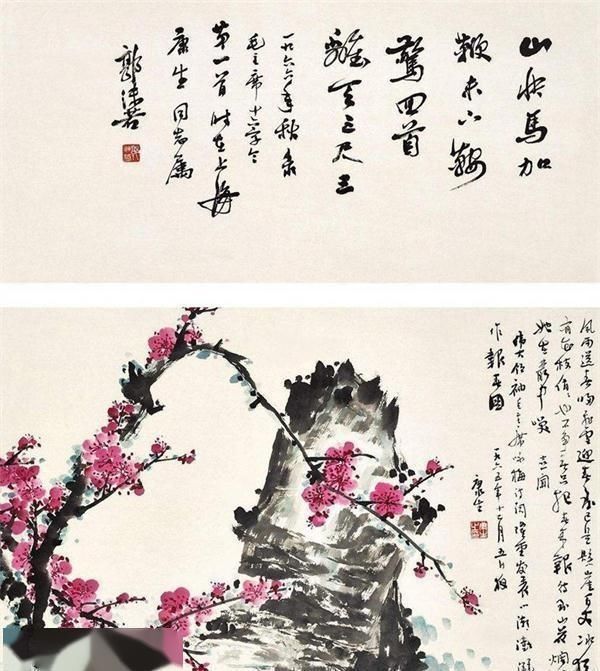 山快馬加
鞭未下鞍
驚回首
離天三尺三
一九六六年秋录
毛主席十六字令
第一首 时在上海
康生同志属
郭沫若
风雨送春归飞雪迎春到已是悬崖百丈冰犹
有花枝俏俏也不争春只把春来报待到山花烂
她在叢中笑
伟大领袖毛主席咏梅词隆重发表
作報
一九六五年十二月五日
康生